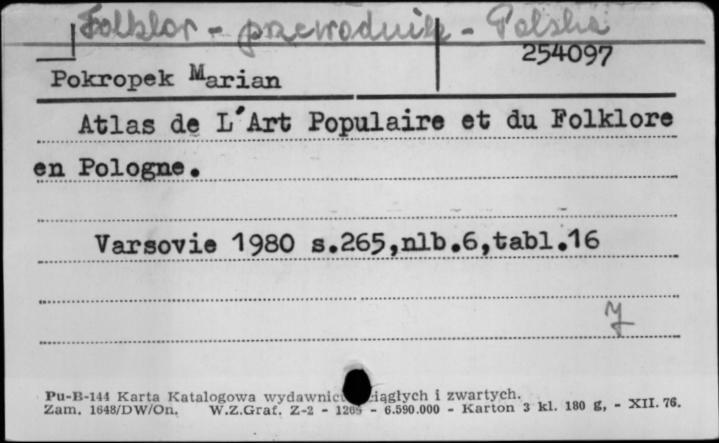 Folklor - przewodnik - Polska
254097
Pokropek Marian
Atlas de L'Art Populaire et du Folklore
en Pologne.
Varsovie 1980 s.265,nlb.6,tabl.16
Pu-B-144 Karta Katalogowa wydawnict ciągłych i zwartych.
Zam. 1648/DW/On. W.Z.Graf. Z-2 - 1265 - 6.590.000 - Karton 3 kl. 180 g, - XII. 76.